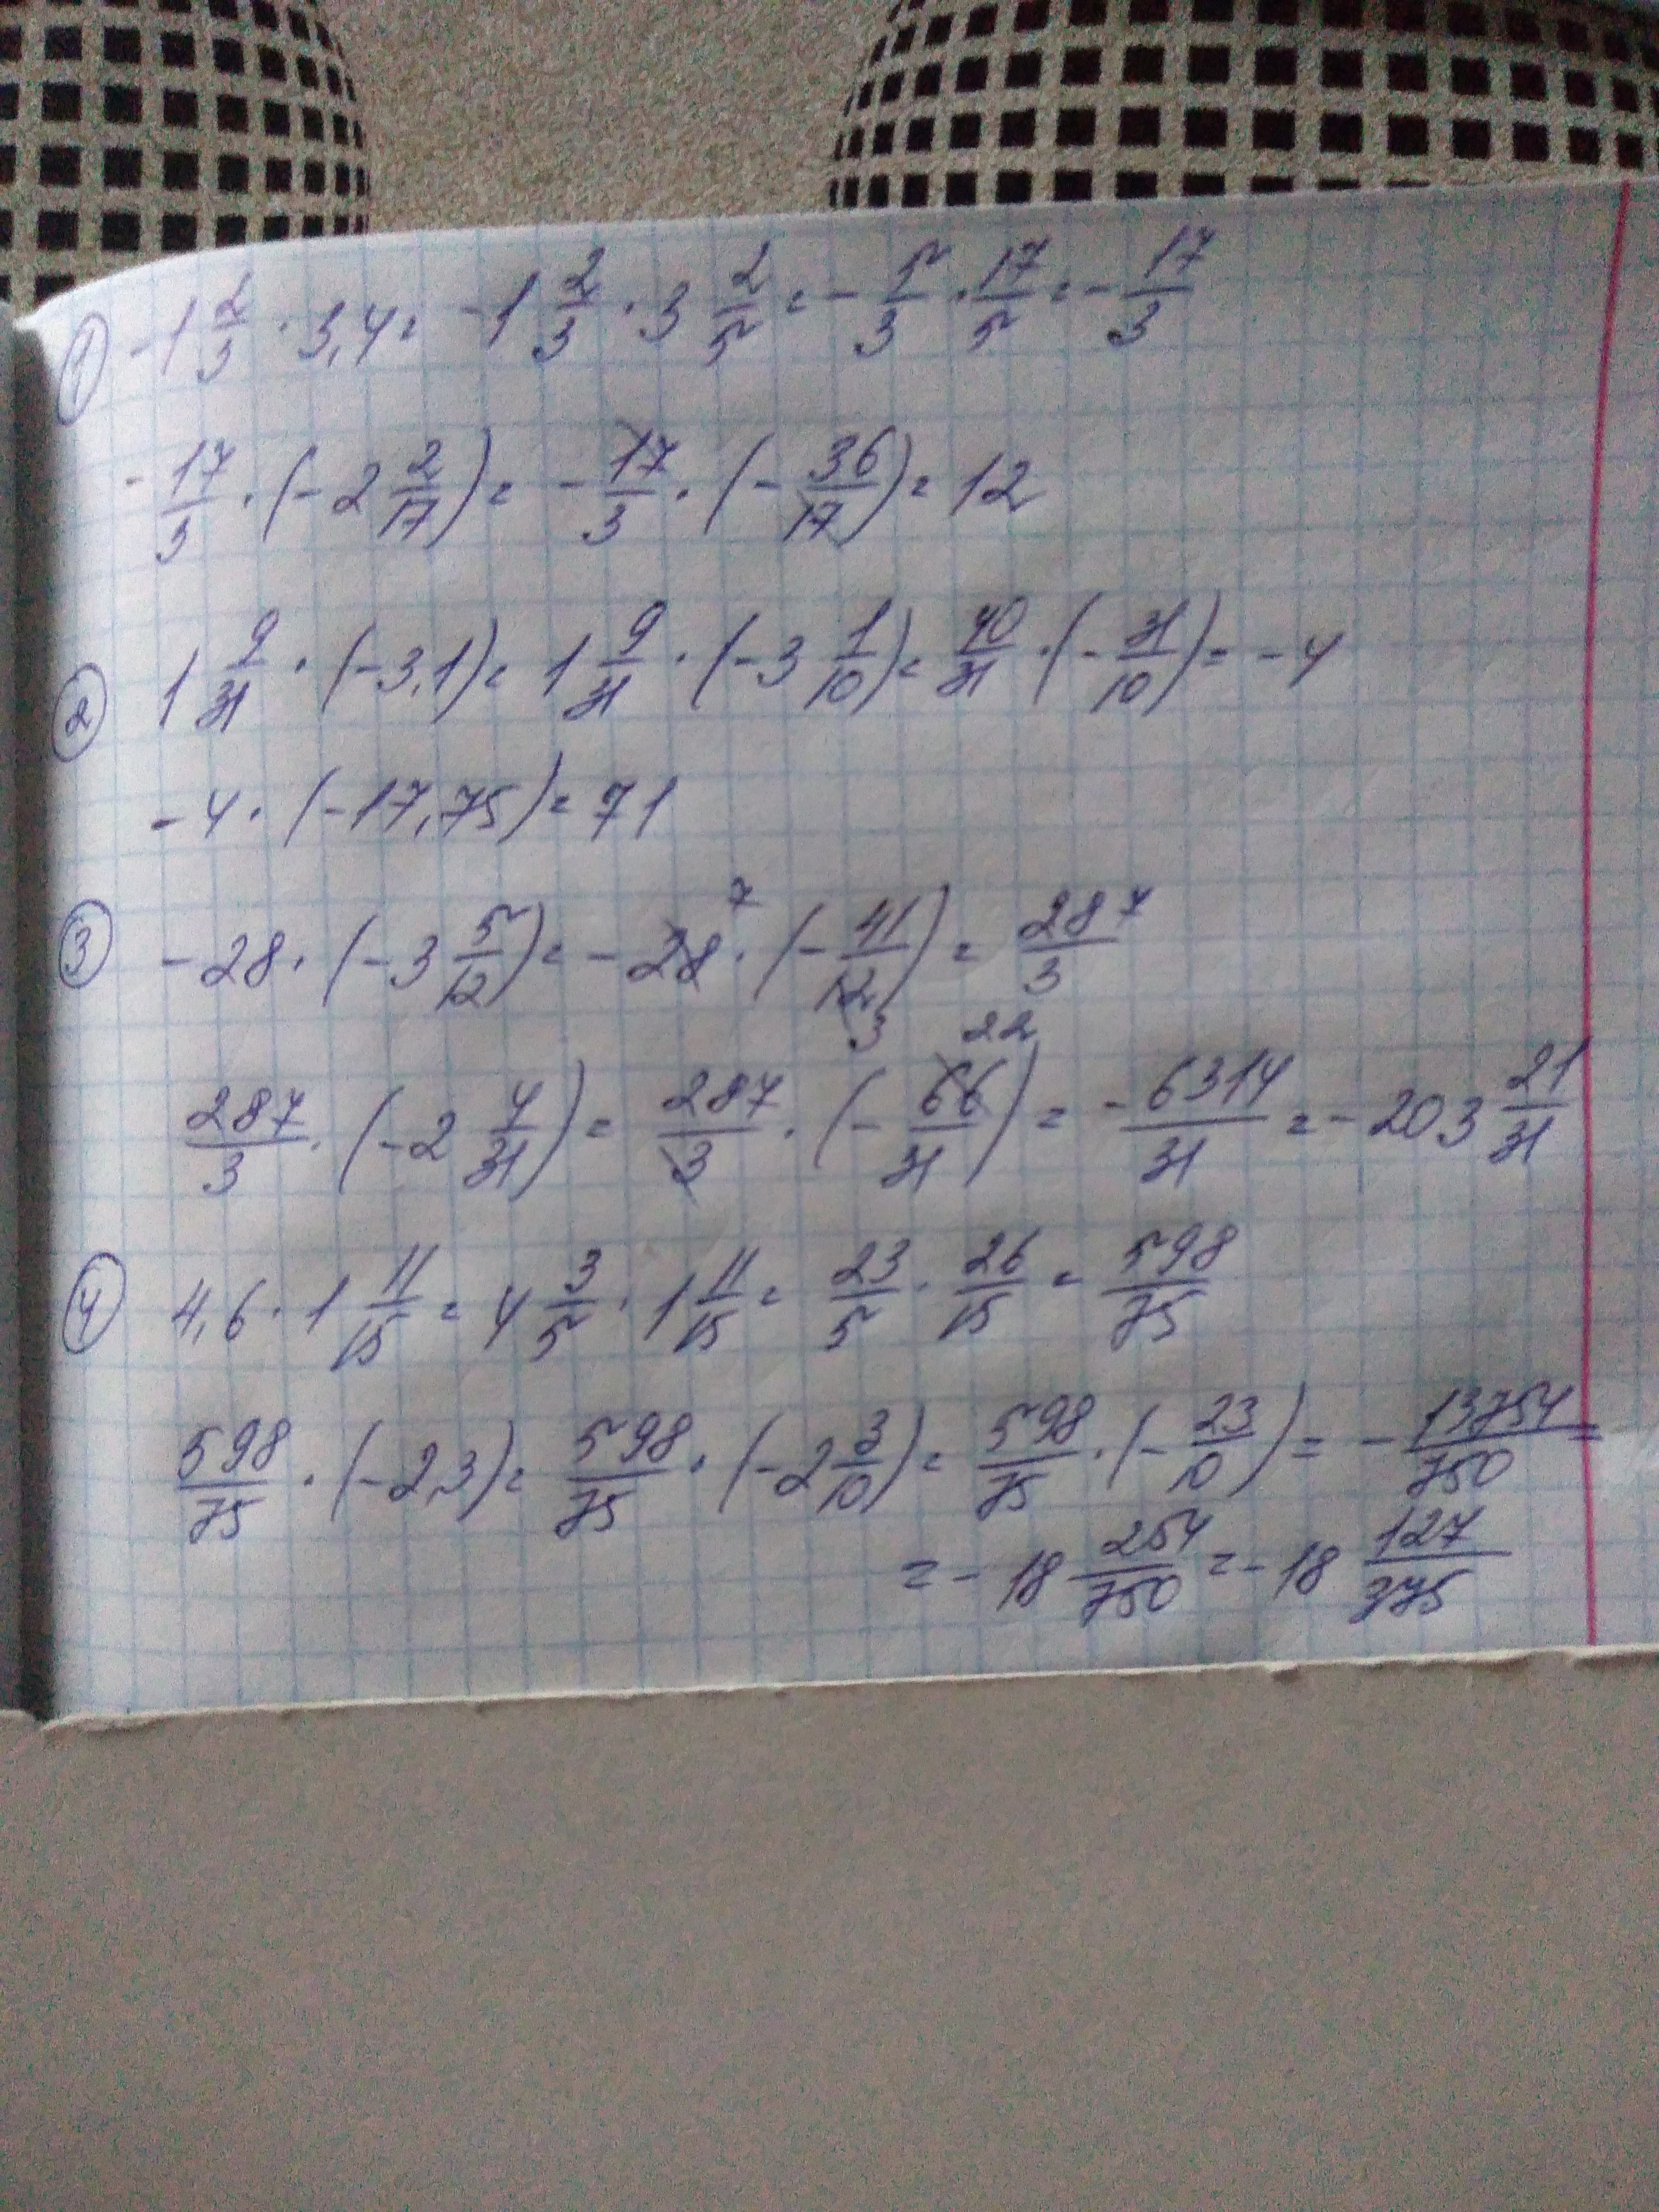 ① -1 2/3 · 3,4 = -1 2/3 · 3 2/5 = - 5/3 · 17/5 = - 17/3
- 17/3 · (-2 2/17) = - 17/3 · (- 36/17) = 12
② 1 9/31 · (-3,1) = 1 9/31 · (-3 1/10) = 40/31 · (- 31/10) = -4
-4 · (-17,75) = 71
③ -28 · (-3 5/12) = -28 7 · (- 41/12 3) = 287/3
287/3 · (-2 4/31) = 287/3 · (- 66/31 22) = - 6314/31 = -203 21/31
④ 4,6 · 1 11/15 = 4 3/5 · 1 11/15 = 23/5 · 26/15 = 598/75
598/75 · (-2,3) = 598/75 · (-2 3/10) = 598/75 · (- 23/10) = - 13754/750 =
= -18 254/750 = -18 127/375